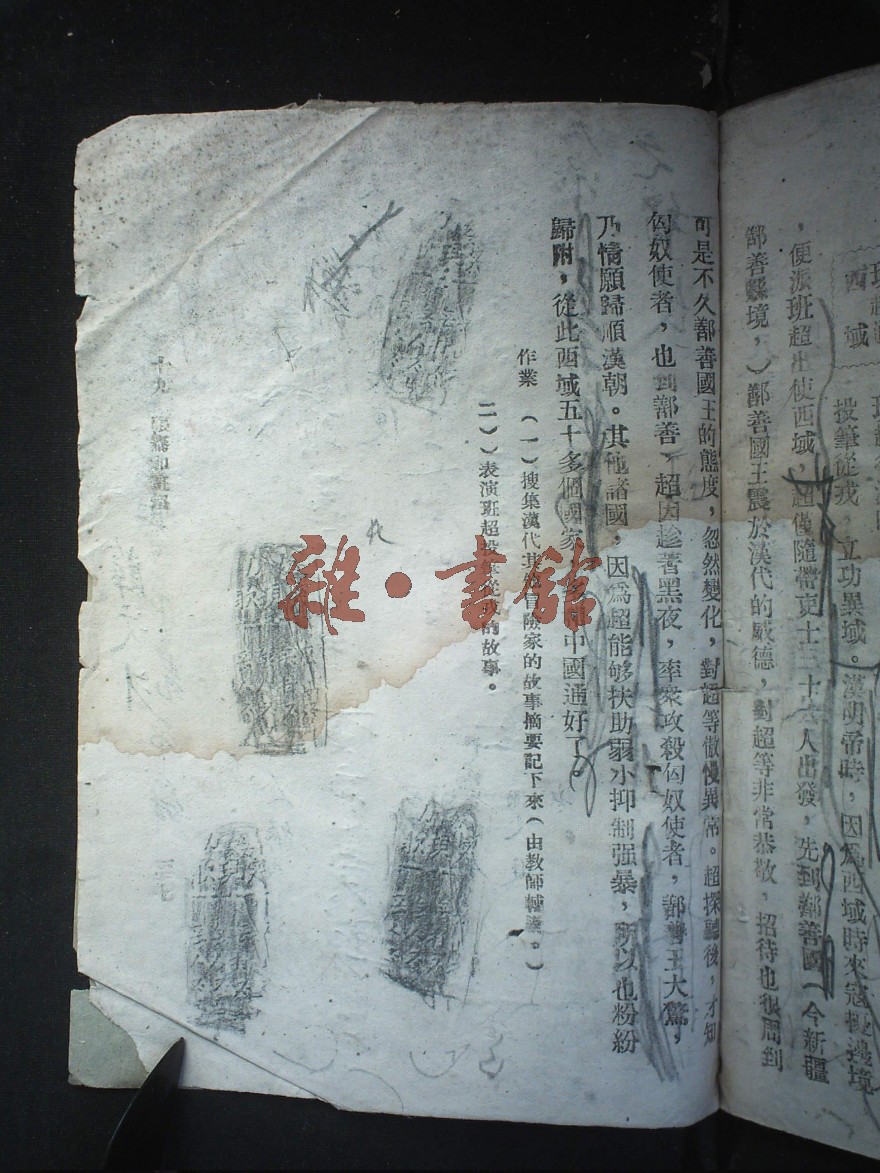 西域
投筆從戎，立功異域。漢明帝時，因爲西域時來寇擾邊境
，便派班超出使西域，超僅隨帶吏士三十六人出發，先到鄯善國（今新疆
鄯善縣境，）鄯善國王震於漢代的威德，對超等非常恭敬，招待也很周到
可是不久鄯善國王的態度，忽然變化，對超等傲慢異常。超探聽後，才知
匈奴使者，也到鄯善，超因趁著黑夜，率衆攻殺匈奴使者，鄯善王大驚，
乃情願歸順漢朝。其他諸國，因爲超能够扶助弱小抑制强暴，所以也粉紛
歸附，從此西域五十多個國家，中國通好了。
作業　（一）搜集漢代其他冒險家的故事摘要記下來（由教師輔。）
二））表演班超投筆從戎的故事。
十九
雜·書館